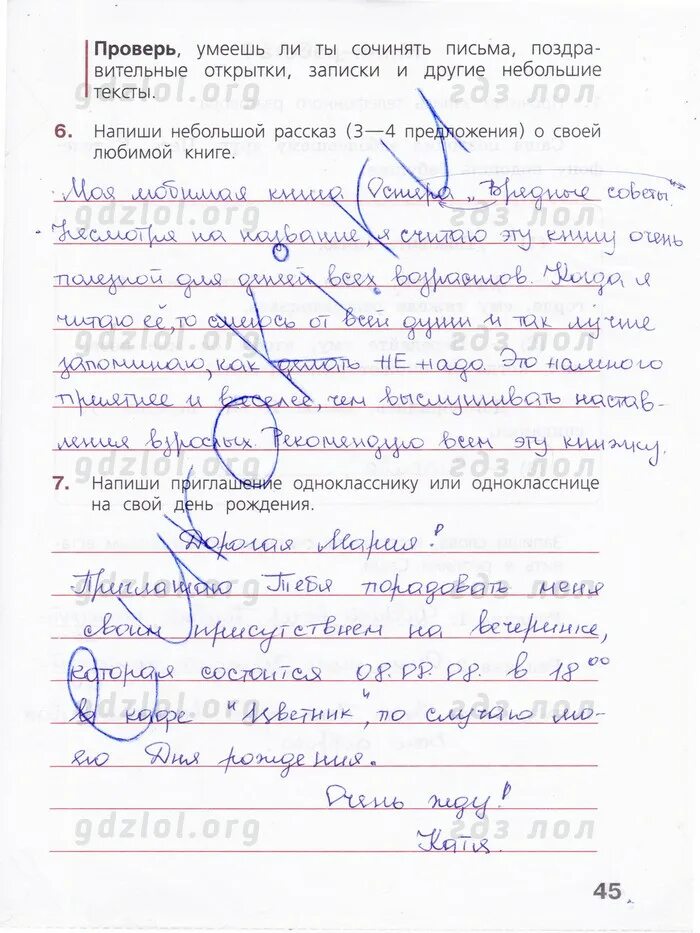 Проверь, умеешь ли ты сочинять письма, поздра-
вительные открытки, записки и другие небольшие
тексты.
gdzlol.org гдз лол
6. Напиши небольшой рассказ (3—4 предложения) о своей
любимой книге.
Моя любимая книга Остера „Вредные советы".
gdzlol.org гдз лол
Несмотря на название, я считаю эту книгу очень
полезной для детей всех возрастов. Когда я
gdzlol.org гдз лол
читаю её, то смеюсь от всей души и так лучше
запоминаю, как делать НЕ надо. Это намного
gdzlol.org гдз лол
приятнее и веселее, чем выслушивать настав-
ления взрослых. Рекомендую всем эту книжку.
gdzlol.org гдз лол
7. Напиши приглашение однокласснику или однокласснице
на свой день рождения.
Дорогая Мария!
gdzlol.org гдз лол
Приглашаю Тебя порадовать меня
своим присутствием на вечеринке,
gdzlol.org гдз лол
которая состоится в 18 00
в кафе "Цветник", по случаю мо-
gdzlol.org гдз лол
его Дня рождения.
Очень жду!
gdzlol.org гдз лол
Катя.
45